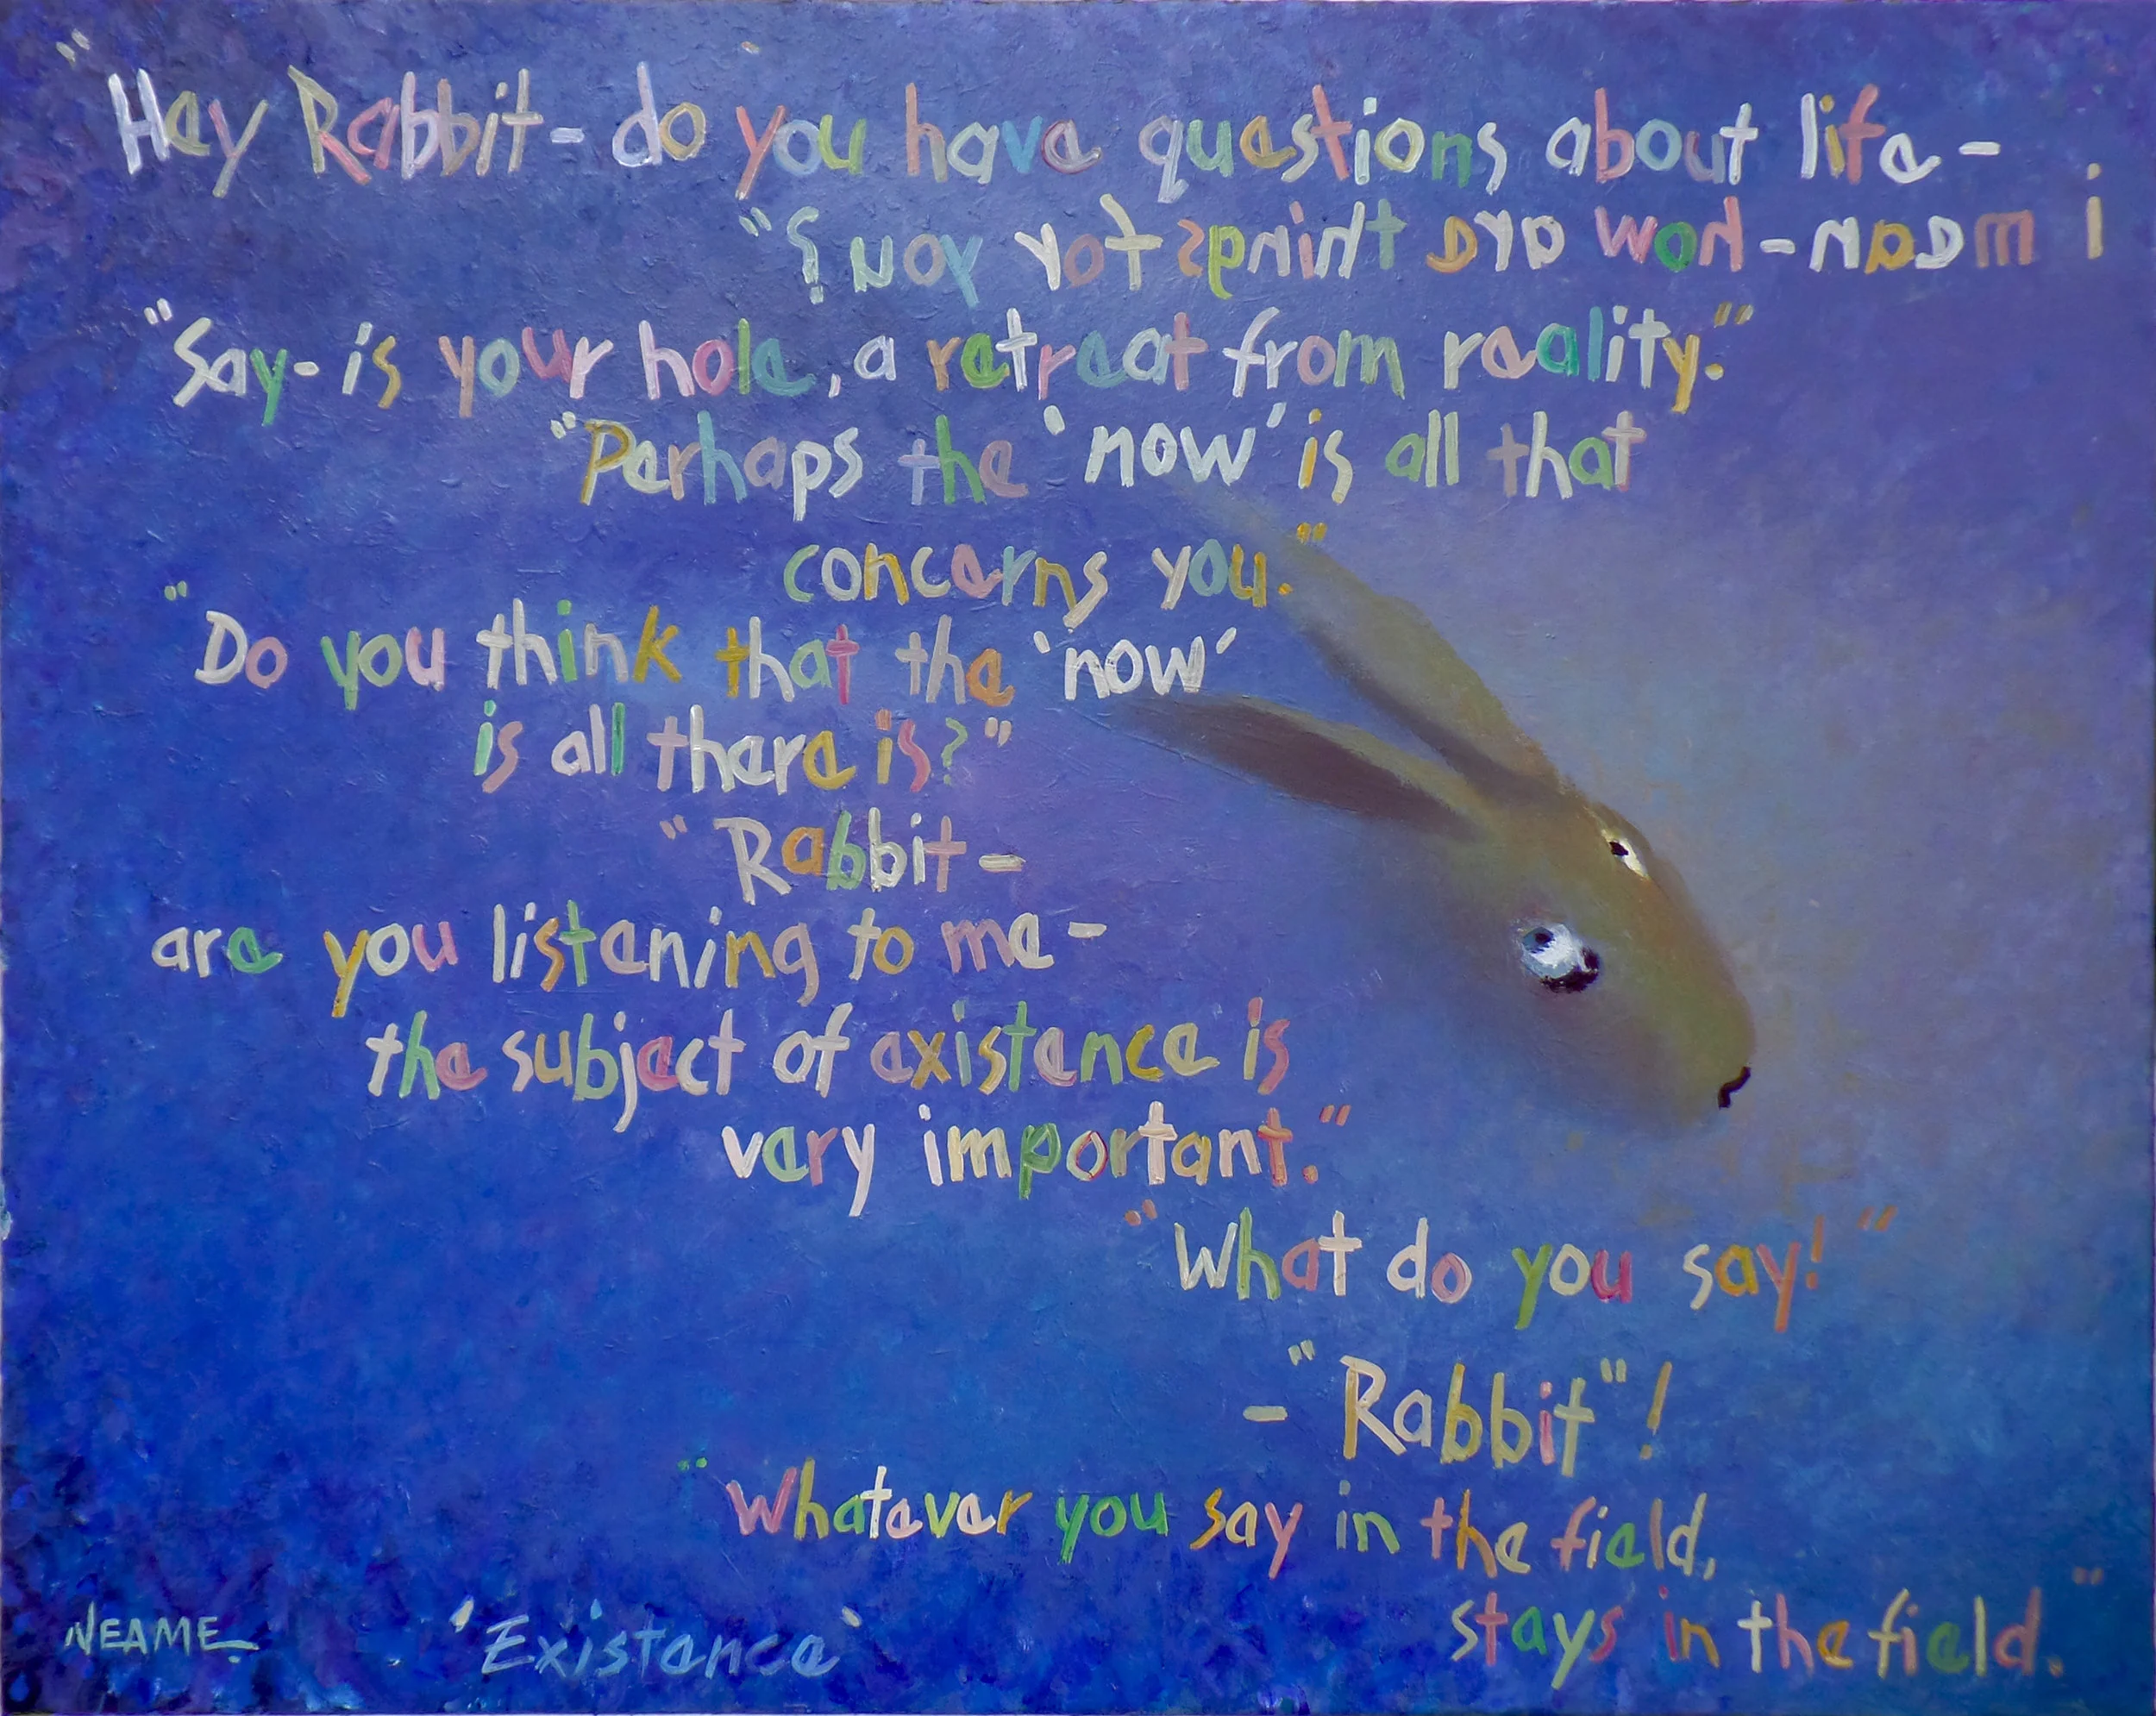 "Hey Rabbit - do you have questions about life -
i mean - how are things for you?"
"Say - is your hole, a retreat from reality."
"Perhaps the 'now' is all that
concerns you."
"Do you think that the 'now'
is all there is?"
"Rabbit -
are you listening to me -
the subject of existence is
very important."
"What do you say!"
- "Rabbit"!
"Whatever you say in the field,
stays in the field."
NEAME. 'Existence'